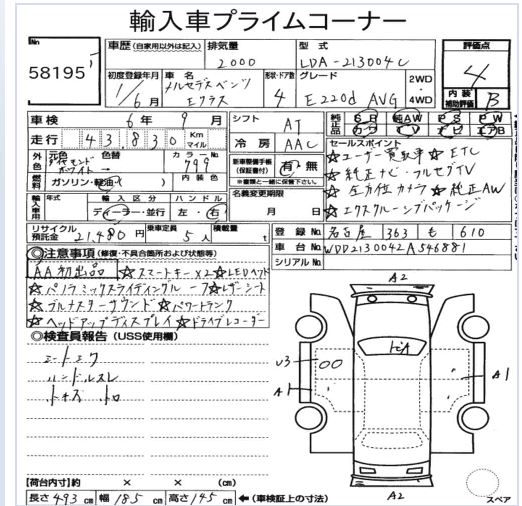 輸入車プライムコーナー
No
58195
車歴 (自家用以外は記入)
排気量
2000
型式
LDA-213004C
評価点
4
内装
補助評価
B
初度登録年月
1/6月
車名
メルセデスベンツ
Eクラス
形状・ドア数
4
グレード
E220d AVG
2WD
4WD
車検 6年 9月
走行 43,830 Km
マイル
シフト AT
冷房 AAC
純正品
SR 純AW PS PW
カワ TV ナビ エアB
セールスポイント
☆ユーザー買取車 ☆ETC
☆純正ナビ・フルセグTV
☆全方位カメラ ☆純正AW
☆エクスクルーシブパッケージ
外色
元色
ダイヤモンド
ホワイト
色替
カラーNo
799
燃料
ガソリン・軽油・( )
内装色
新車整備手帳
(保証書付)
有・無
※書類と一緒に保管下さい
輸入車用
年式
輸入区分
ディーラー・並行
ハンドル
左・右
名義変更期限
月 日
リサイクル
預託金
21,480円
乗車定員
5人
積載量
t
登録No
名古屋 363 も 610
車台No
WDD2130042A546881
シリアルNo
◎注意事項 (修復・不具合箇所および状態等)
AA初出品 ☆スマートキーx2 ☆LEDヘッド
☆パノラミックスライディングルーフ ☆レザーシート
☆ブルメスターサウンド ☆パワートランク
☆ヘッドアップディスプレイ ☆ドライブレコーダー
◎検査員報告 (USS使用欄)
ハンドルスレ
A2
U3
A1
A1
A2
スペア
【荷台内寸】約 × × (cm)
長さ 493 cm 幅 185 cm 高さ 145 cm ←(車検証上の寸法)